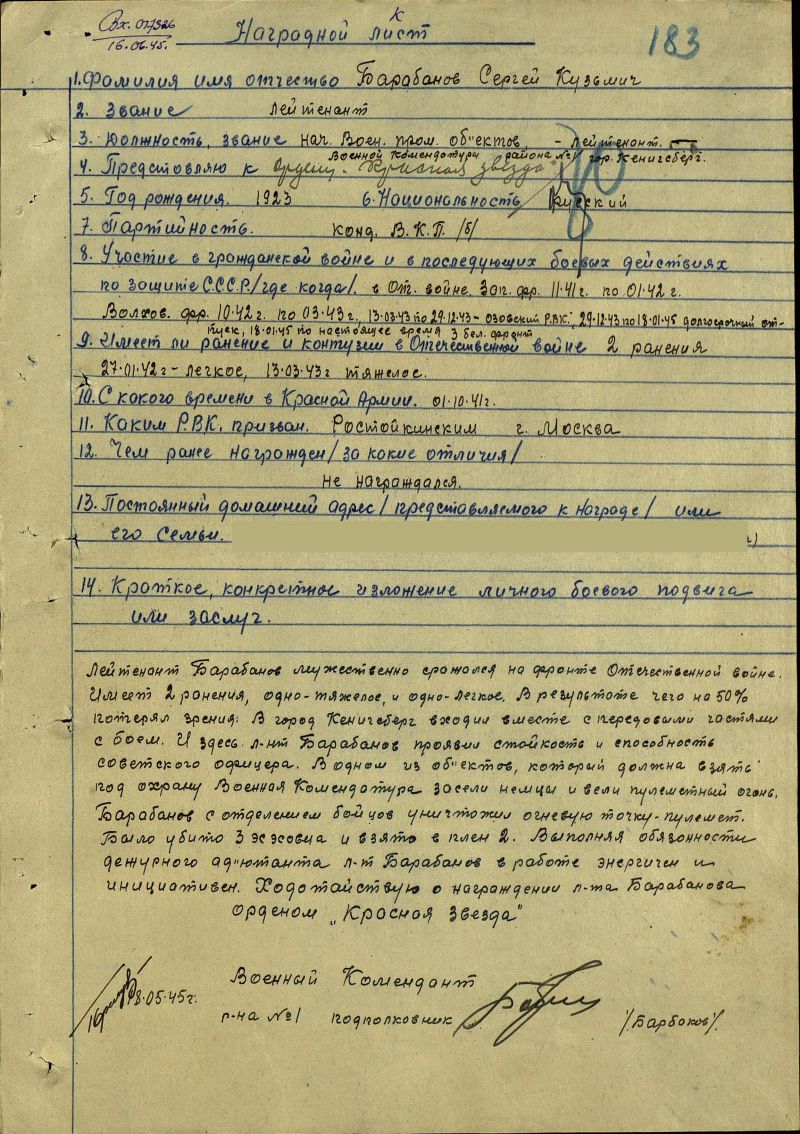 Вх. 017326
16.06.45.
К
Наградной лист
183
1. Фамилия имя отчество Барабанов Сергей Кузьмич
2. Звание лейтенант
3. Должность, звание нач. Воен. пром. об"ектов, - лейтенант.
Военной Комендатуры района №1 гор. Кенигсберг.
4. Представляю к Ордену "Красная звезда"
5. Год рождения. 1923 6. Национальность Русский
7. Партийность. конд. В.К.П. /б/
8. Участие в гражданской войне и в последующих боевых действиях
по защите С.С.С.Р./где когда/. в От. войне. Зап. фр. 11.41г. по 01.42г.
Волхов. фр. 10.42г. по 03.43г., 13.03.43 по 29.12.43 - Озовский Р.В.К., 29.12.43 по 18.01.45 долгосрочный от-
пуск, 18.01.45 по настоящее время 3 бел. фронт
9. Имеет ли ранение и контузии в Отечественной войне 2 ранения
27.01.42г - легкое, 13.03.43г тяжелое.
10. С какого времени в Красной Армии. 01.10.41г.
11. Каким Р.В.К. призван. Ростойкинским г. Москва
12. Чем ранее награжден/за какие отличия/
не награждался.
13. Постоянный домашний адрес/представляемого к награде/ или
его семьи. г)
14. Краткое, конкретное изложение личного боевого подвига
или заслуг.
Лейтенант Барабанов мужественно сражался на фронте Отечественной войне.
Имеет 2 ранения, одно-тяжелое, и одно-легкое. В результате чего на 50%
потерял зрения: В город Кенигсберг входил вместе с передовыми частями
с боем. И здесь л-нт Барабанов проявил стойкость и способность
советского офицера. В одном из об"ектов, который должна взять
под охрану Военная Комендатура засели немцы и вели пулеметный огонь.
Барабанов с отделением бойцов уничтожил огневую точку-пулемет.
Было убито 3 эсэсовца и взято в плен 2. Выполняя обязонности
дежурного ад"ютанта л-т Барабанов в работе энергичен и
инициативен. Ходотайствую о награждении л-та Барабанова
орденом "Красная Звезда"
Военный Комендант
18.05.45г. р-на №1 подполковник /Барбоков/.